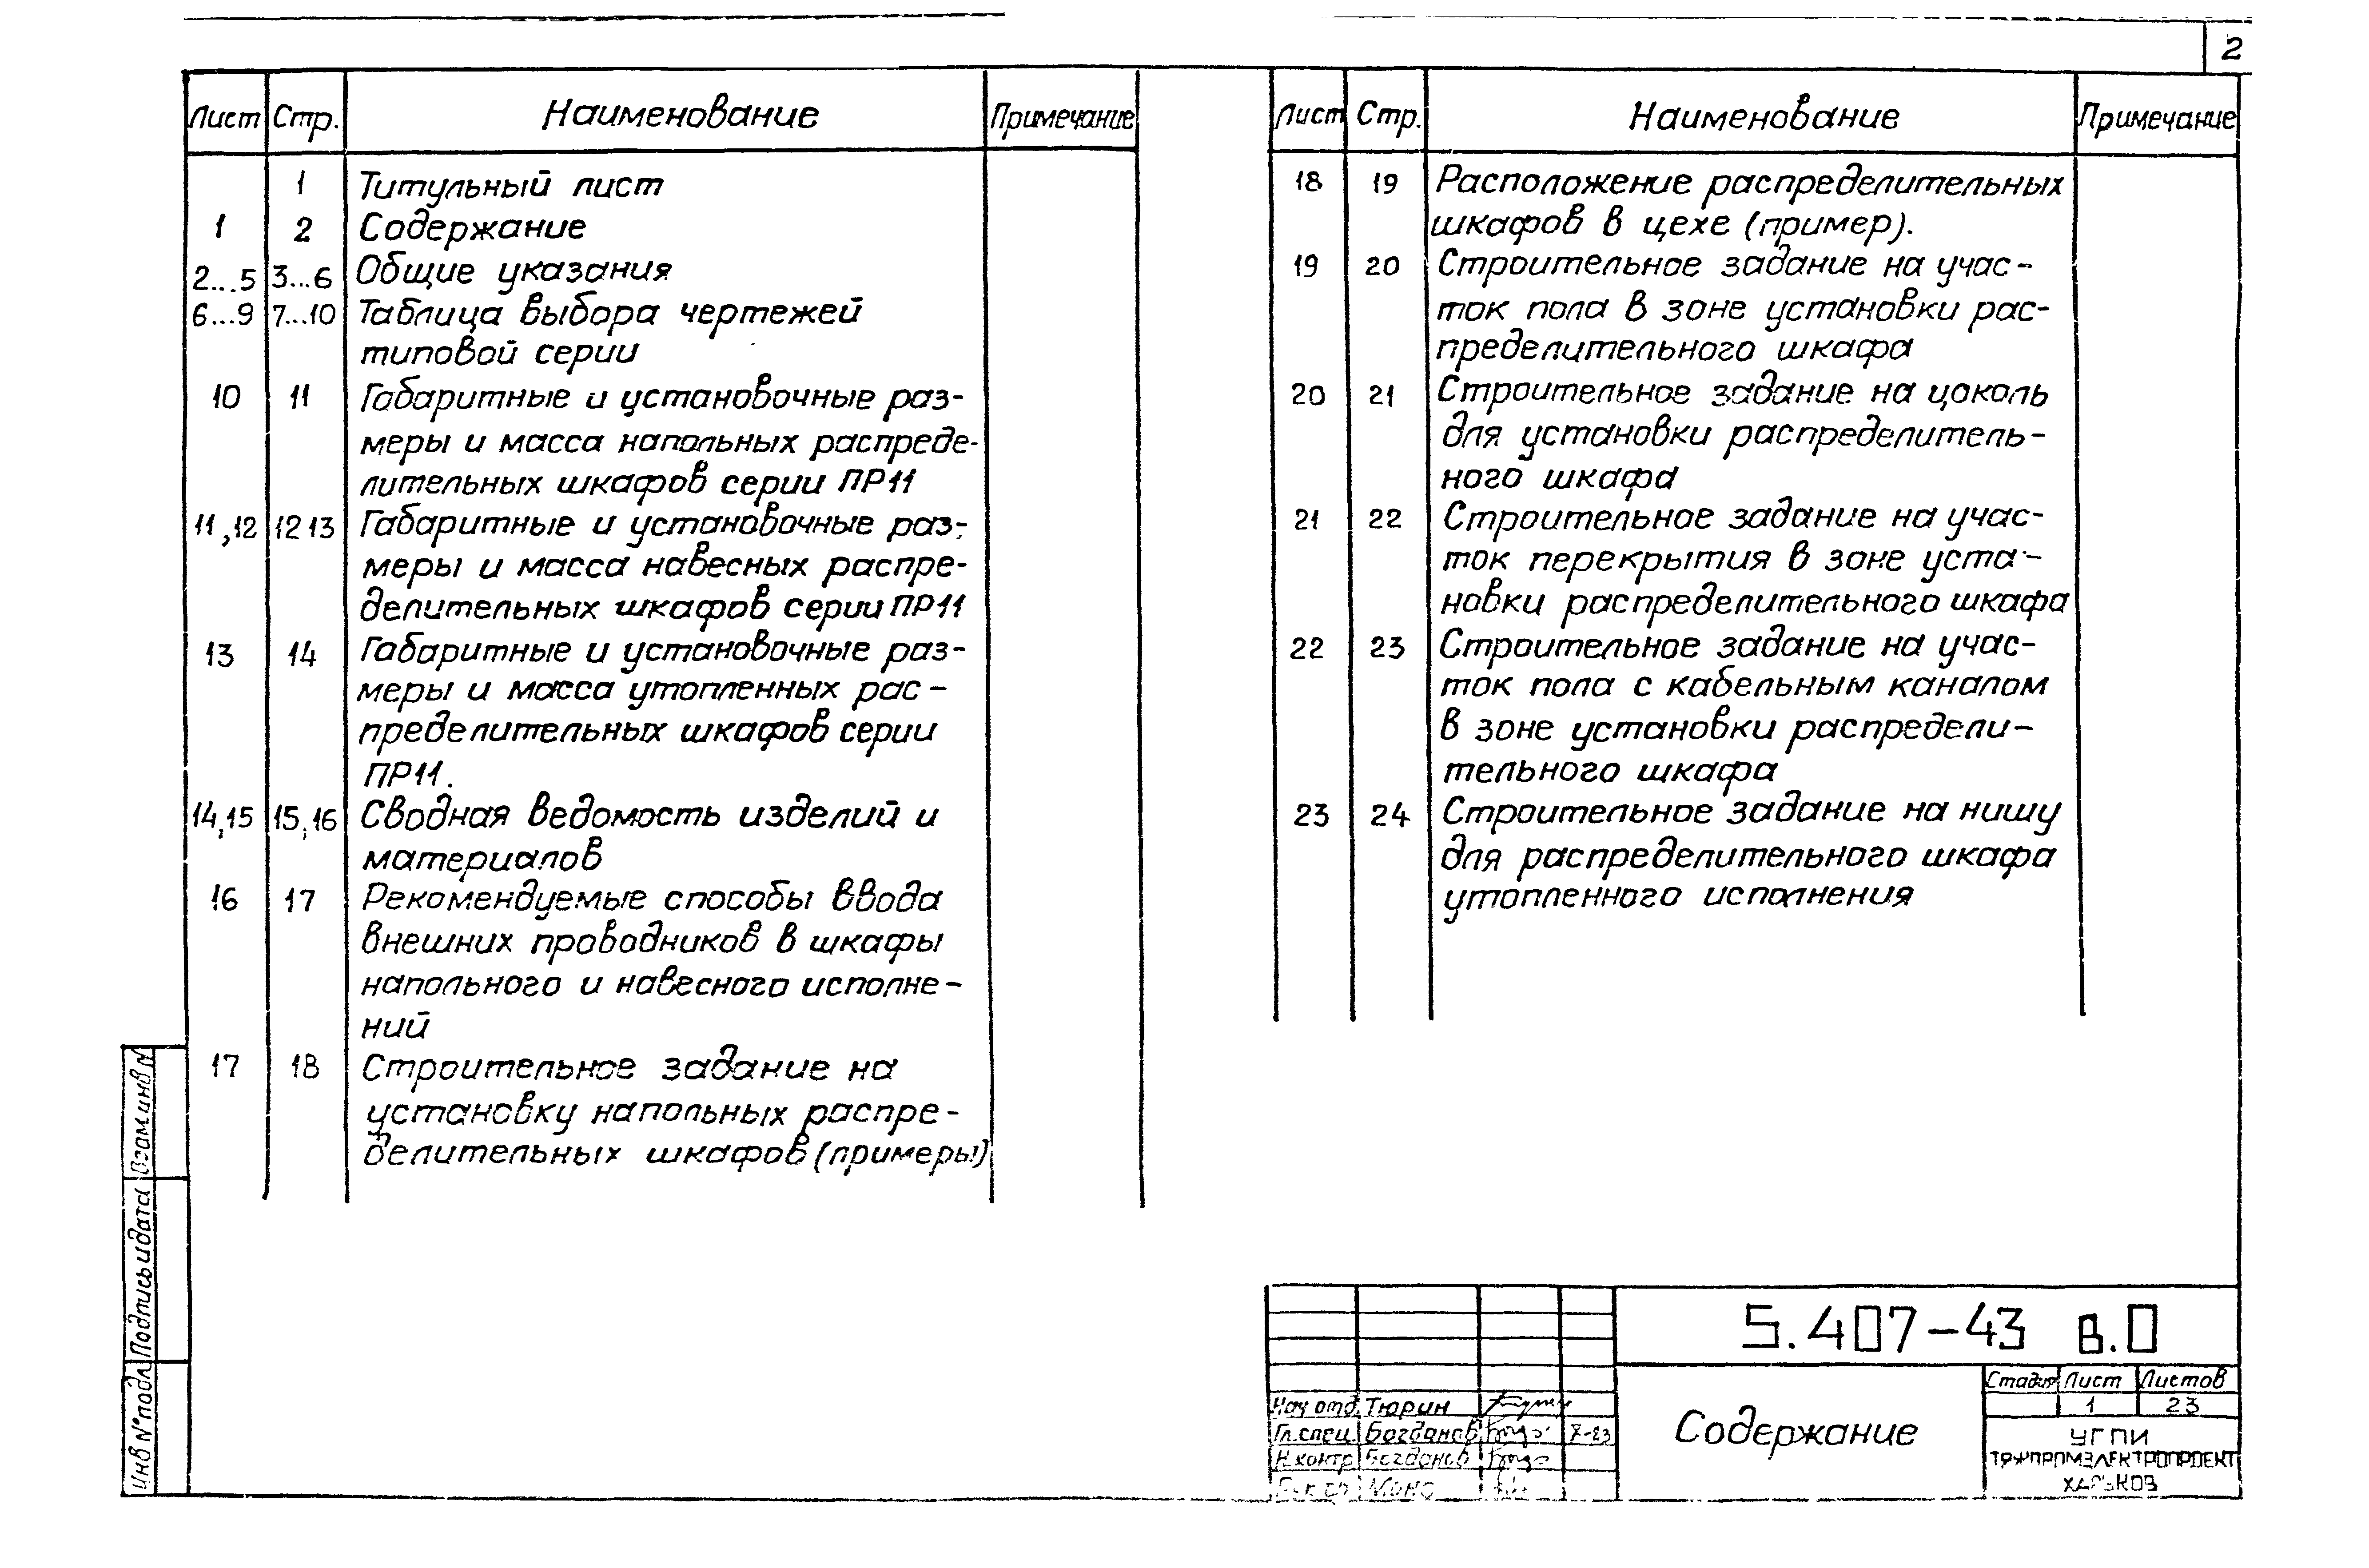 2
Лист Стр. Наименование Примечание
1 Титульный лист
1 2 Содержание
2...5 3...6 Общие указания
6...9 7...10 Таблица выбора чертежей
типовой серии
10 11 Габаритные и установочные раз-
меры и масса напольных распреде-
лительных шкафов серии ПР11
11,12 12 13 Габаритные и установочные раз-
меры и масса навесных распре-
делительных шкафов серии ПР11
13 14 Габаритные и установочные раз-
меры и масса утопленных рас-
пределительных шкафов серии
ПР11.
14,15 15,16 Сводная ведомость изделий и
материалов
16 17 Рекомендуемые способы ввода
внешних проводников в шкафы
напольного и навесного исполне-
ний
17 18 Строительное задание на
установку напольных распре-
делительных шкафов (примеры)
Лист Стр. Наименование Примечание
18 19 Расположение распределительных
шкафов в цехе (пример).
19 20 Строительное задание на учас-
ток пола в зоне установки рас-
пределительного шкафа
20 21 Строительное задание на цоколь
для установки распределитель-
ного шкафа
21 22 Строительное задание на учас-
ток перекрытия в зоне уста-
новки распределительного шкафа
22 23 Строительное задание на учас-
ток пола с кабельным каналом
в зоне установки распредели-
тельного шкафа
23 24 Строительное задание на нишу
для распределительного шкафа
утопленного исполнения
Инв №подл Подпись и дата Взам инв №
5.407-43 в.0
Нач отд. Тюрин
Гл.спец. Богданов
Н.контр Богданов
Содержание
Стадия Лист Листов
1 23
УГПИ
ТЯЖПРОМЭЛЕКТРОПРОЕКТ
ХАРЬКОВ